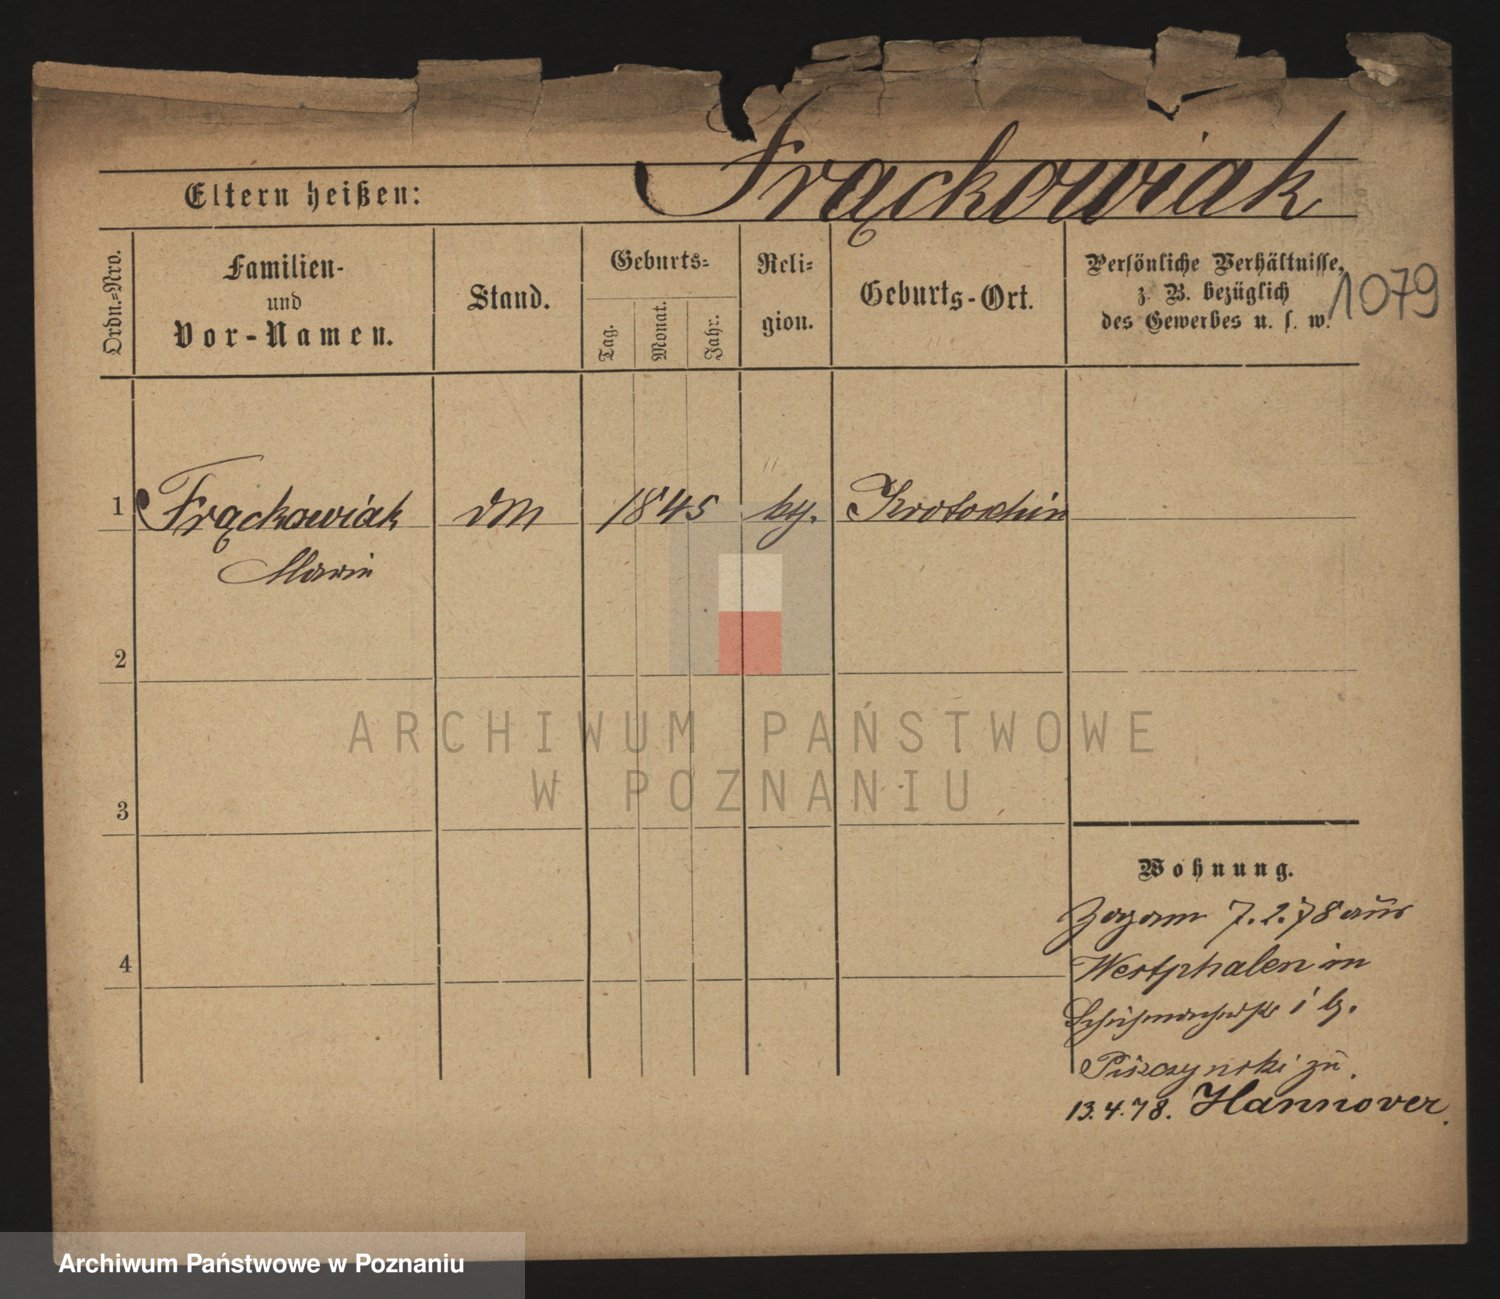 Frąckowiak
Eltern heißen:
Ordn.-Nro.
Familien-
und
Vor-Namen.
Stand.
Geburts-
Tag.
Monat.
Jahr.
Reli-
gion.
Geburts-Ort.
Persönliche Verhältnisse,
z. B. bezüglich
des Gewerbes u. s. w.
1079
1 Frąckowiak 1845 Krotoschin
Marie
2
3
4
ARCHIWUM PAŃSTWOWE
W POZNANIU
Wohnung.
7.2.78 aus
Westphalen in
zu
13.4.78. Hannover.
Archiwum Państwowe w Poznaniu